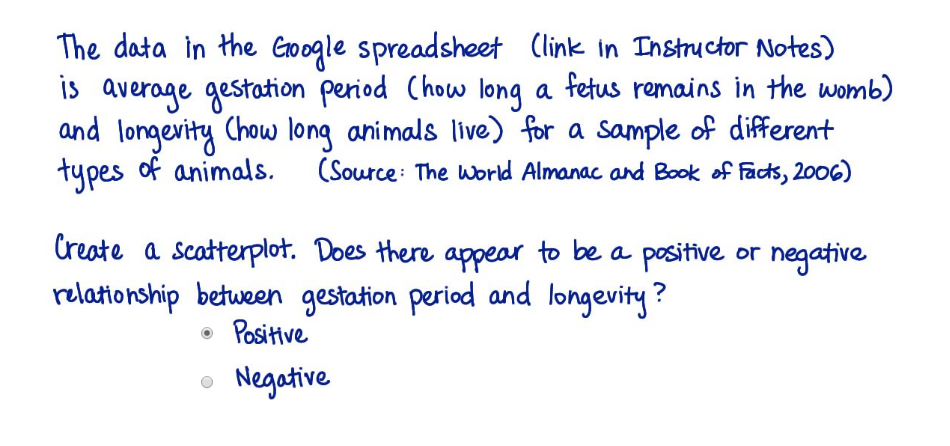 The data in the Google spreadsheet (link in Instructor Notes)
is average gestation period (how long a fetus remains in the womb)
and longevity (how long animals live) for a sample of different
types of animals. (Source: The World Almanac and Book of Facts, 2006)
Create a scatterplot. Does there appear to be a positive or negative
relationship between gestation period and longevity?
Positive
Negative